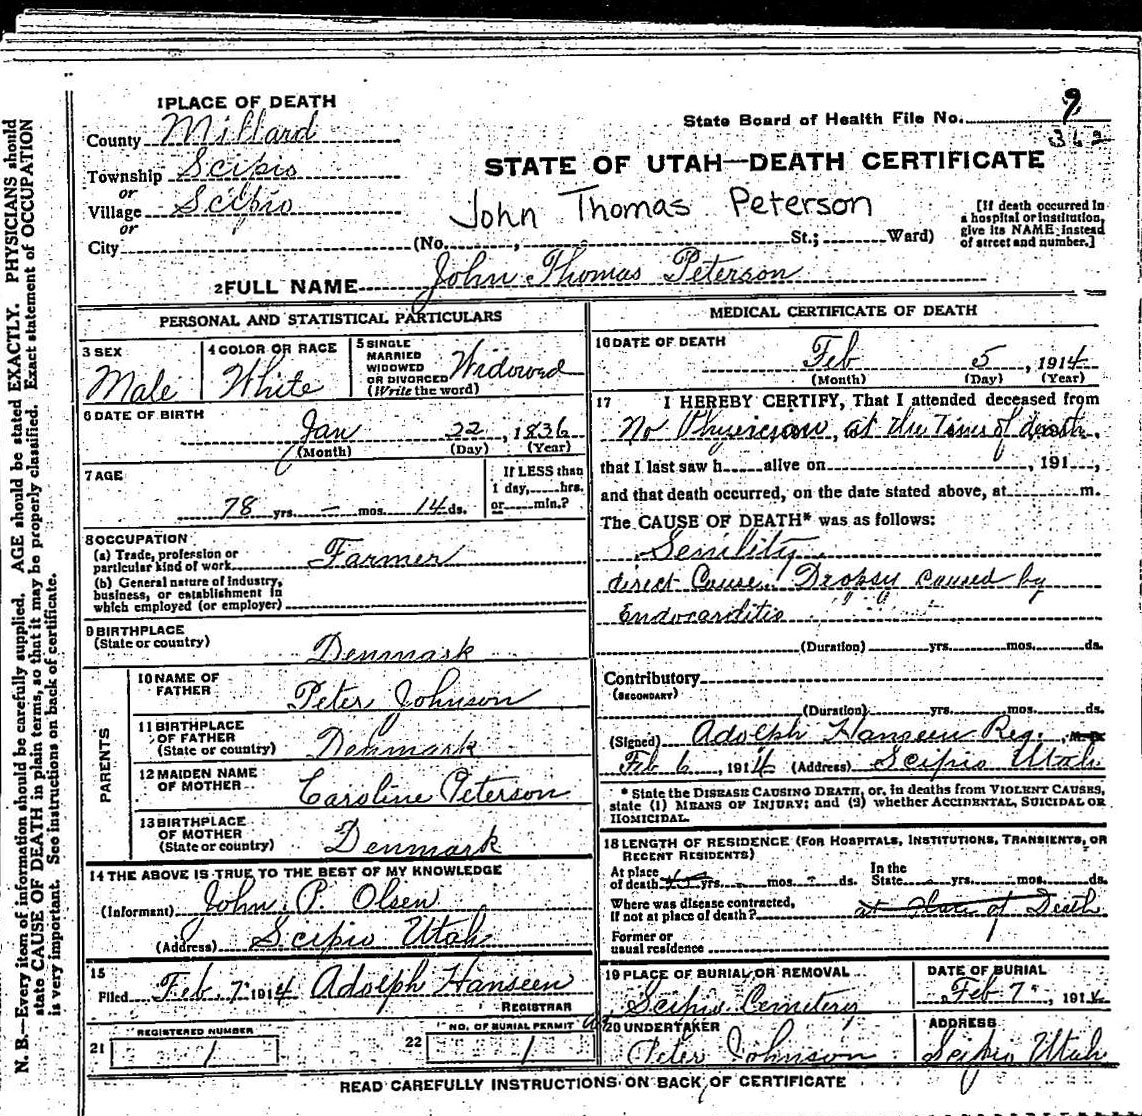 1 PLACE OF DEATH
County Millard
Township Scipio
or
Village Scipio
or
City (No. , St.; Ward)
State Board of Health File No. 9
362
STATE OF UTAH—DEATH CERTIFICATE
John Thomas Peterson
[If death occurred in
a hospital or institution,
give its NAME instead
of street and number.]
2 FULL NAME John Thomas Peterson
PERSONAL AND STATISTICAL PARTICULARS
3 SEX
Male
4 COLOR OR RACE
White
5 SINGLE
MARRIED
WIDOWED
OR DIVORCED
(Write the word)
Widowed
6 DATE OF BIRTH
Jan 22, 1836
(Month) (Day) (Year)
7 AGE
78 yrs. – mos. 14 ds.
If LESS than
1 day, hrs.
or min.?
8 OCCUPATION
(a) Trade, profession or
particular kind of work Farmer
(b) General nature of industry,
business, or establishment in
which employed (or employer)
9 BIRTHPLACE
(State or country) Denmark
PARENTS
10 NAME OF
FATHER Peter Johnson
11 BIRTHPLACE
OF FATHER
(State or country) Denmark
12 MAIDEN NAME
OF MOTHER Caroline Peterson
13 BIRTHPLACE
OF MOTHER
(State or country) Denmark
14 THE ABOVE IS TRUE TO THE BEST OF MY KNOWLEDGE
(Informant) John P. Olsen
(Address) Scipio Utah
15
Filed Feb. 7, 1914 Adolph Hanseen
REGISTRAR
REGISTERED NUMBER
21 1
NO. OF BURIAL PERMIT
22 1
MEDICAL CERTIFICATE OF DEATH
16 DATE OF DEATH
Feb 5, 1914
(Month) (Day) (Year)
17 I HEREBY CERTIFY, That I attended deceased from
No Physician, at the Time of death.
that I last saw h alive on , 191 ,
and that death occurred, on the date stated above, at m.
The CAUSE OF DEATH* was as follows:
Senility
direct Cause. Dropsy caused by
Endocarditis
(Duration) yrs. mos. ds.
Contributory
(SECONDARY)
(Duration) yrs. mos. ds.
(Signed) Adolph Hanseen Reg.
Feb 6, 1914 (Address) Scipio Utah
* State the DISEASE CAUSING DEATH, or, in deaths from VIOLENT CAUSES,
state (1) MEANS OF INJURY; and (2) whether ACCIDENTAL, SUICIDAL OR
HOMICIDAL.
18 LENGTH OF RESIDENCE (FOR HOSPITALS, INSTITUTIONS, TRANSIENTS, OR
RECENT RESIDENTS)
At place
of death yrs. mos. ds.
In the
State yrs. mos. ds.
Where was disease contracted,
if not at place of death? at Place of Death
Former or
usual residence
19 PLACE OF BURIAL OR REMOVAL
Scipio Cemetery
DATE OF BURIAL
Feb 7, 1914
20 UNDERTAKER
Peter Johnson
ADDRESS
Scipio Utah
READ CAREFULLY INSTRUCTIONS ON BACK OF CERTIFICATE
N. B.—Every item of information should be carefully supplied. AGE should be stated EXACTLY. PHYSICIANS should
state CAUSE OF DEATH in plain terms, so that it may be properly classified. Exact statement of OCCUPATION
is very important. See instructions on back of certificate.